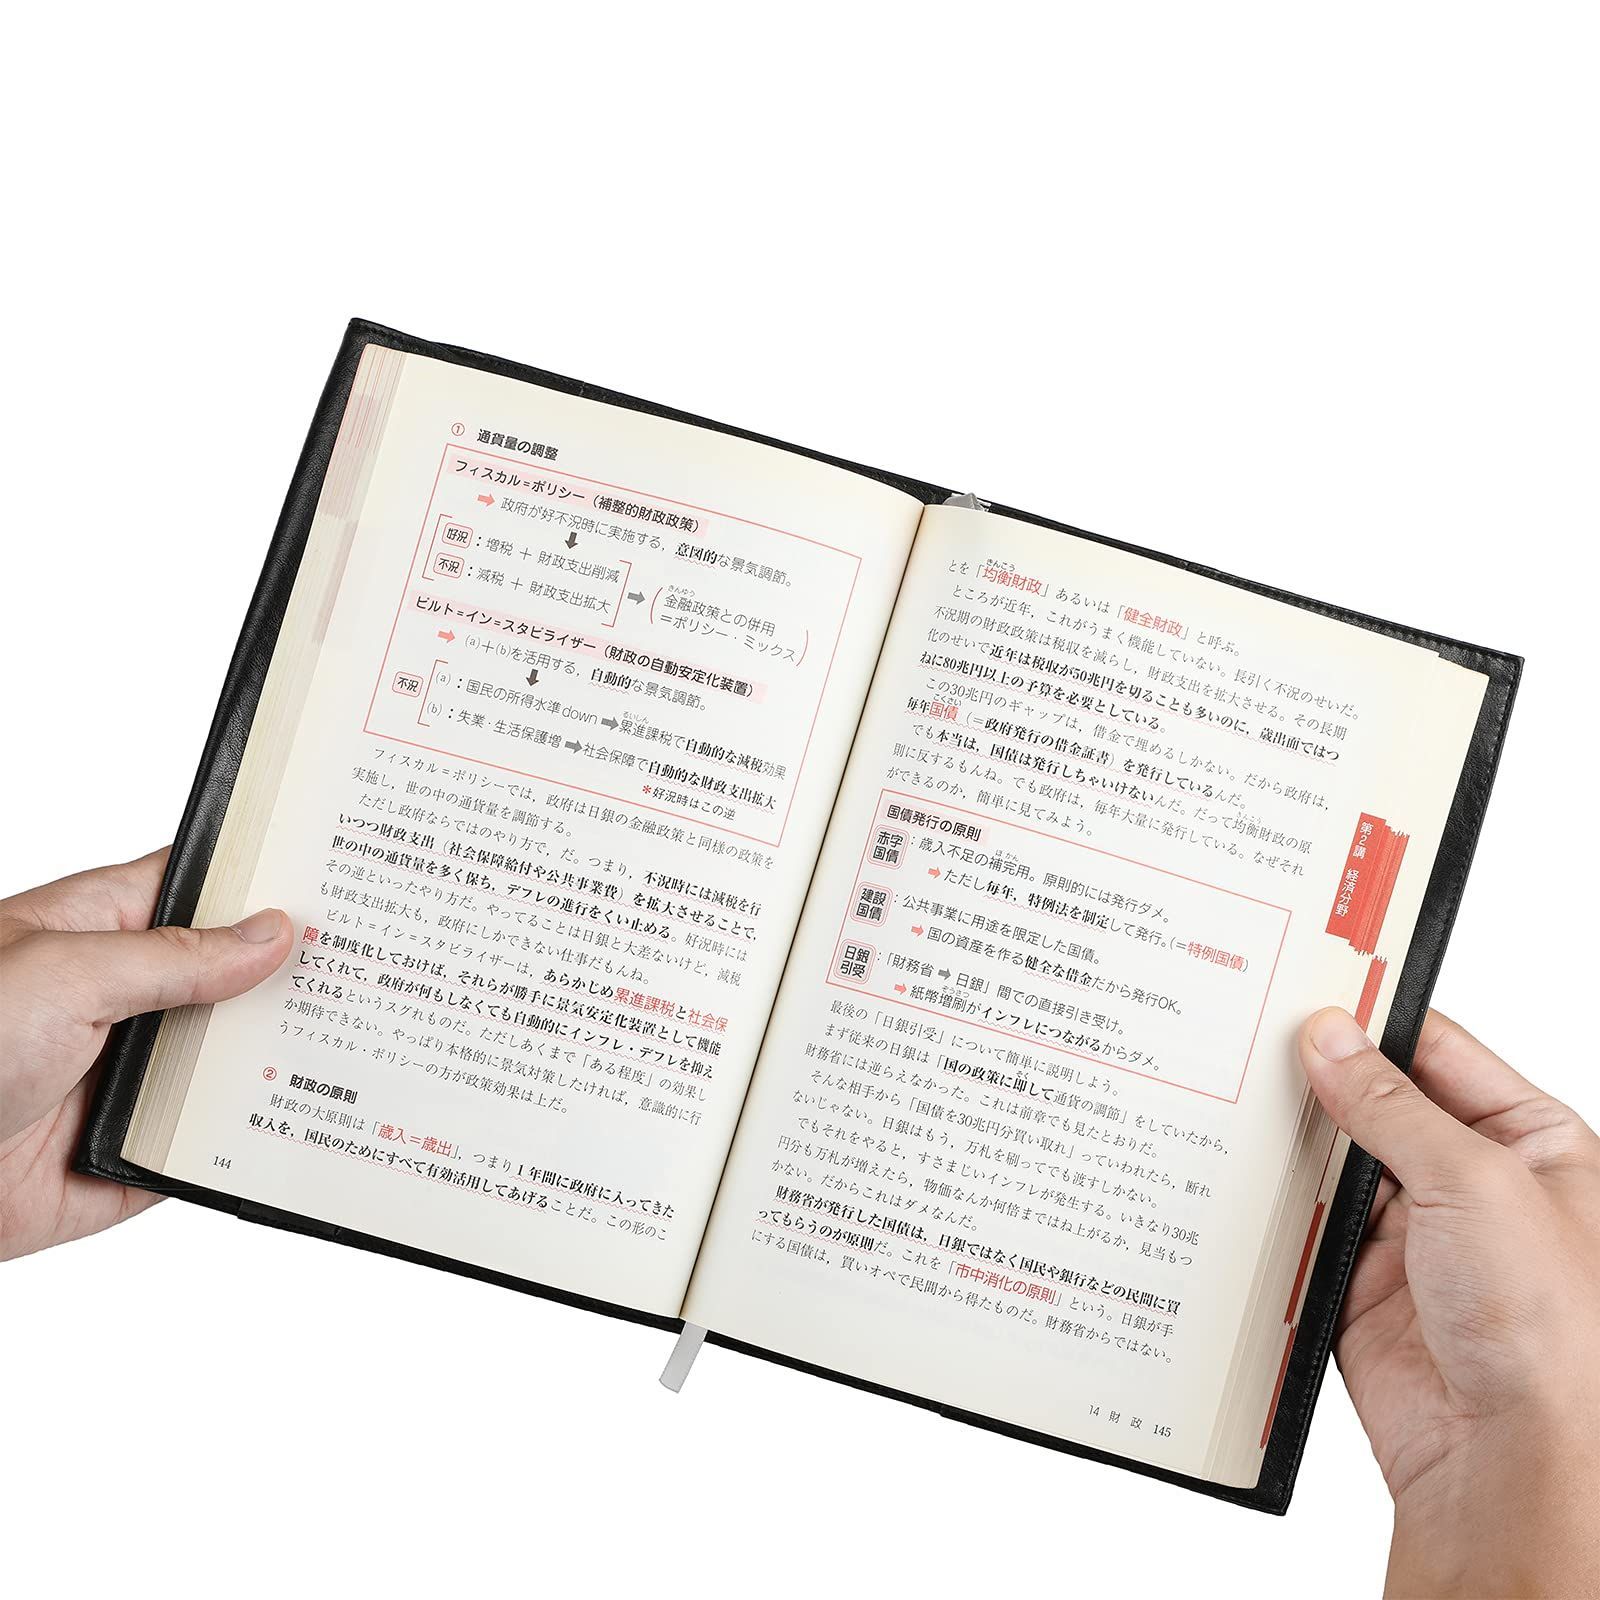 ① 通貨量の調整
フィスカル=ポリシー(補整的財政政策)
➡ 政府が好不況時に実施する,意図的な景気調節。
好況:増税 + 財政支出削減
不況:減税 + 財政支出拡大
➡
きんゆう
(金融政策との併用
=ポリシー・ミックス)
ビルト=イン=スタビライザー(財政の自動安定化装置)
➡ (a)+(b)を活用する,自動的な景気調節。
不況
(a):国民の所得水準down➡累進課税で自動的な減税効果
るいしん
(b):失業・生活保護増➡社会保障で自動的な財政支出拡大
*好況時はこの逆
フィスカル=ポリシーでは,政府は日銀の金融政策と同様の政策を
実施し,世の中の通貨量を調節する。
ただし政府ならではのやり方で,だ。つまり,不況時には減税を行
いつつ財政支出(社会保障給付や公共事業費)を拡大させることで,
世の中の通貨量を多く保ち,デフレの進行をくい止める。好況時には
その逆といったやり方だ。やってることは日銀と大差ないけど,減税
も財政支出拡大も,政府にしかできない仕事だもんね。
ビルト=イン=スタビライザーは,あらかじめ累進課税と社会保
障を制度化しておけば,それらが勝手に景気安定化装置として機能
してくれて,政府が何もしなくても自動的にインフレ・デフレを抑え
てくれるというスグれものだ。ただしあくまで「ある程度」の効果し
か期待できない。やっぱり本格的に景気対策したければ,意識的に行
うフィスカル・ポリシーの方が政策効果は上だ。
② 財政の原則
財政の大原則は「歳入=歳出」,つまり1年間に政府に入ってきた
収入を,国民のためにすべて有効活用してあげることだ。この形のこ
144
きんこう
とを「均衡財政」あるいは「健全財政」と呼ぶ。
ところが近年,これがうまく機能していない。長引く不況のせいだ。
不況期の財政政策は税収を減らし,財政支出を拡大させる。その長期
化のせいで近年は税収が50兆円を切ることも多いのに,歳出面ではつ
ねに80兆円以上の予算を必要としている。
この30兆円のギャップは,借金で埋めるしかない。だから政府は,
こくさい
毎年国債(=政府発行の借金証書)を発行しているんだ。
でも本当は,国債は発行しちゃいけないんだ。だって均衡財政の原
きんこう
則に反するもんね。でも政府は,毎年大量に発行している。なぜそれ
ができるのか,簡単に見てみよう。
国債発行の原則
ほかん
赤字国債:歳入不足の補完用。原則的には発行ダメ。
➡ ただし毎年,特例法を制定して発行。(=特例国債)
建設国債:公共事業に用途を限定した国債。
➡ 国の資産を作る健全な借金だから発行OK。
日銀引受:「財務省 ➡ 日銀」間での直接引き受け。
ぞうさつ
➡ 紙幣増刷がインフレにつながるからダメ。
最後の「日銀引受」について簡単に説明しよう。
まず従来の日銀は「国の政策に即して通貨の調節」をしていたから,
そく
財務省には逆らえなかった。これは前章でも見たとおりだ。
そんな相手から「国債を30兆円分買い取れ」っていわれたら,断れ
ないじゃない。日銀はもう,万札を刷ってでも渡すしかない。
でもそれをやると,すさまじいインフレが発生する。いきなり30兆
円分も万札が増えたら,物価なんか何倍まではね上がるか,見当もつ
かない。だからこれはダメなんだ。
財務省が発行した国債は,日銀ではなく国民や銀行などの民間に買
ってもらうのが原則だ。これを「市中消化の原則」という。日銀が手
にする国債は,買いオペで民間から得たものだ。財務省からではない。
14 財 政 145
第2講 経済分野